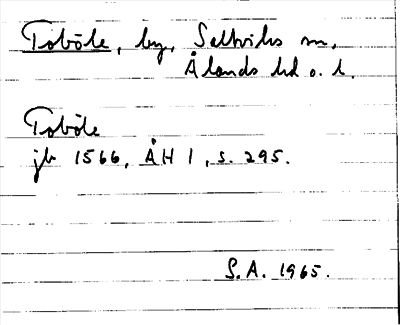 Toböle, by, Saltviks sn,
Ålands hd o. l.
Toböle
jb 1566, ÅH 1, s. 295.
S.A. 1965.